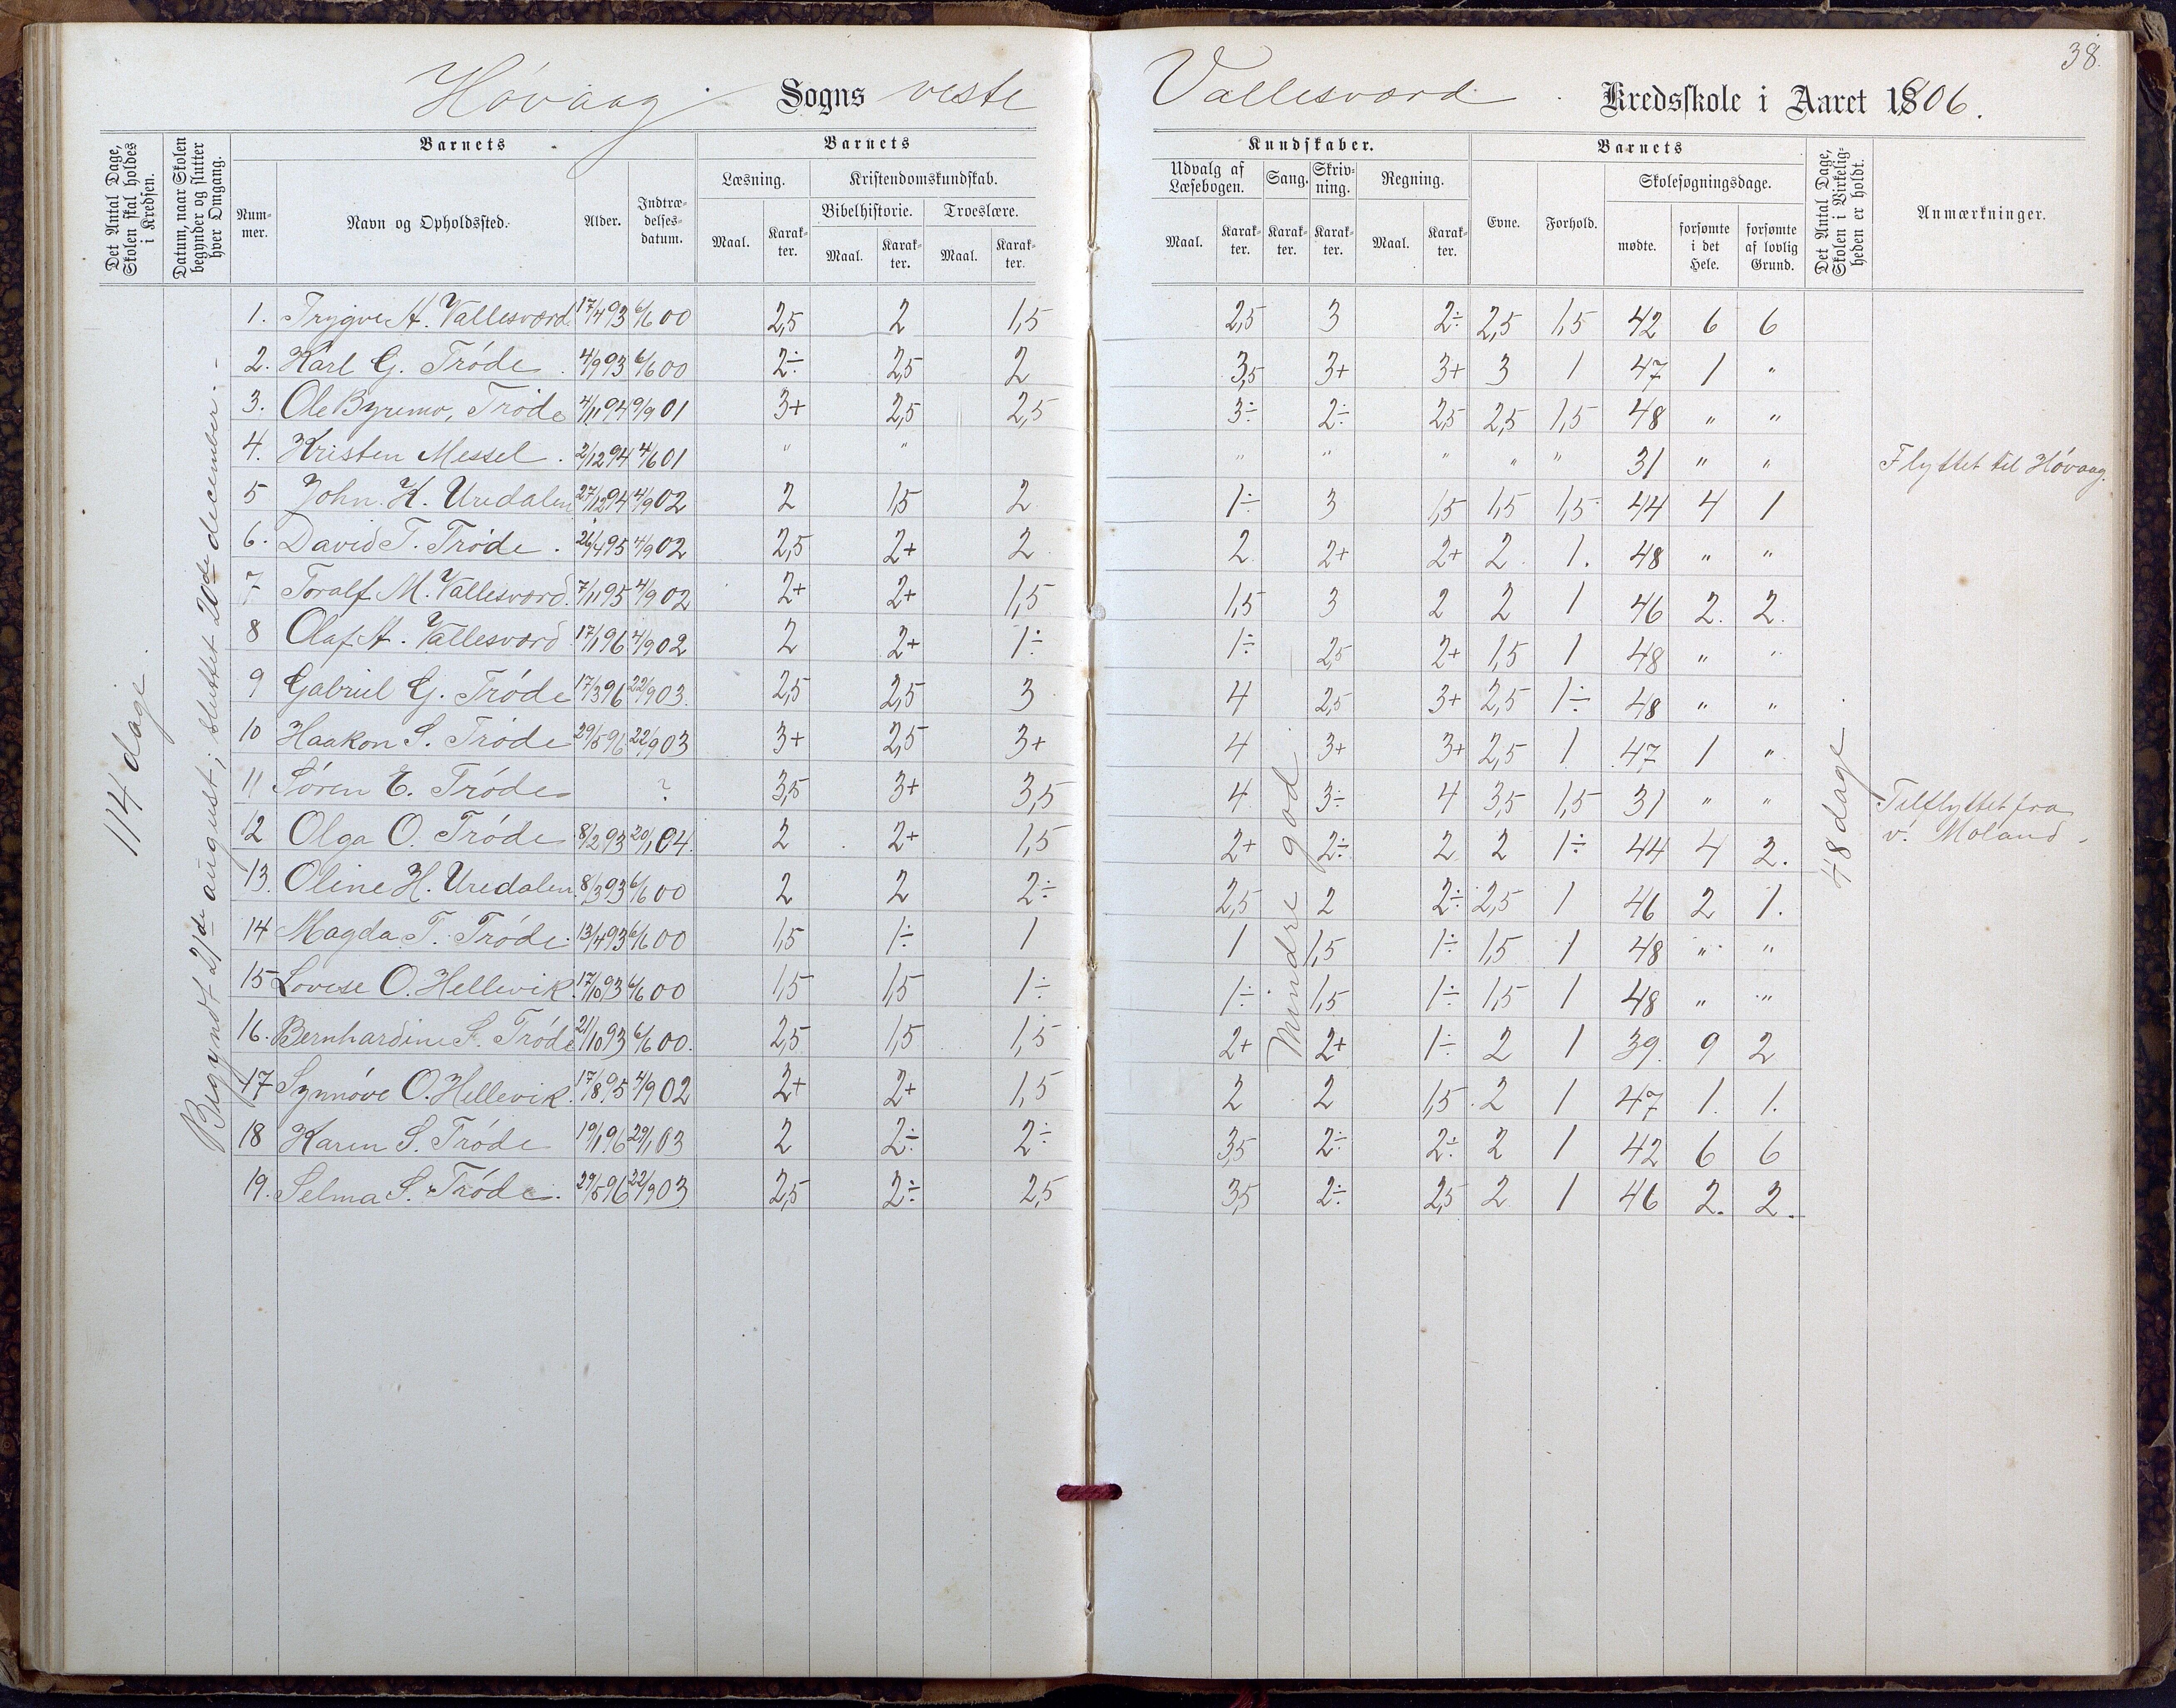 38.
Høvaag Sogns veste Vallesværd Kredsskole i Aaret 1906.
Det Antal Dage, Skolen skal holdes i Kredsen.
Datum, naar Skolen begynder og slutter hver Omgang.
Barnets
Nummer.
Navn og Opholdssted.
Alder.
Indtrædelsesdatum.
Barnets
Læsning.
Maal. Karakter.
Kristendomskundskab.
Bibelhistorie.
Maal. Karakter.
Troeslære.
Maal. Karakter.
Kundskaber.
Udvalg af Læsebogen.
Maal. Karakter.
Sang.
Karakter.
Skrivning.
Karakter.
Regning.
Maal. Karakter.
Barnets
Evne. Forhold.
Skolesøgningsdage.
mødte. forsømte i det Hele. forsømte af lovlig Grund.
Det Antal Dage, Skolen i Virkeligheden er holdt.
Anmærkninger.
114 dage
Begyndt 21de august; sluttet 20de december. -
1. Trygve A. Vallesværd 17/4 93 6/6 00 2,5 2 1,5 2,5 3 2÷ 2,5 1,5 42 6 6
2. Karl G. Trøde 4/9 93 6/6 00 2÷ 2,5 2 3,5 3+ 3+ 3 1 47 1 "
3. Ole Byremo, Trøde 4/11 94 9/9 01 3+ 2,5 2,5 3÷ 2÷ 2,5 2,5 1,5 48 " "
4. Kristen Messel. 2/12 94 4/6 01 " " " " " " " 31 " " Flyttet til Høvaag.
5 John. K. Uredalen 27/12 94 4/9 02 2 1,5 2 1÷ 3 1,5 1,5 1,5 44 4 1
6. David T. Trøde. 26/4 95 4/9 02 2,5 2+ 2 2 2+ 2+ 2 1. 48 " "
7 Toralf M. Vallesværd. 7/11 95 4/9 02 2+ 2+ 1,5 1,5 3 2 2 1 46 2. 2.
8 Olaf A. Vallesværd 17/1 96 4/9 02 2 2+ 1÷ 1÷ 2,5 2+ 1,5 1 48 " "
9 Gabriel G. Trøde 17/3 96 22/9 03. 2,5 2,5 3 4 2,5 3+ 2,5 1÷ 48 " "
10 Haakon S. Trøde 29/5 96 22/9 03 3+ 2,5 3+ 4 3+ 3+ 2,5 1 47 1 "
11 Søren E. Trøde ? 3,5 3+ 3,5 4 3÷ 4 3,5 1,5 31 " " Tilflyttet fra v. Moland.
12 Olga O. Trøde 8/2 93 20/1 04. 2 2+ 1,5 2+ 2÷ 2 2 1÷ 44 4 2.
13. Oline H. Uredalen 8/3 93 6/6 00 2 2 2÷ 2,5 2 2÷ 2,5 1 46 2 1.
14 Magda T. Trøde. 13/4 93 6/6 00 1,5 1÷ 1 1 1,5 1÷ 1,5 1 48 " "
15 Lovise O. Hellevik. 17/10 93 6/6 00 1,5 1,5 1÷ 1÷ 1,5 1÷ 1,5 1 48 " "
16. Bernhardine S. Trøde 21/10 93 6/6 00. 2,5 1,5 1,5 2+ 2+ 1÷ 2 1 39. 9 2
17 Synnøve O. Hellevik. 17/8 95 4/9 02 2+ 2+ 1,5 2 2 1,5 2 1 47 1. 1.
18 Karen S. Trøde 19/1 96 29/1 03 2 2÷ 2÷ 3,5 2÷ 2÷ 2 1 42 6 6
19. Selma S. Trøde. 29/5 96 22/9 03. 2,5 2÷ 2,5 3,5 2÷ 2,5 2 1 46 2. 2.
Mindre god.
48 dage.